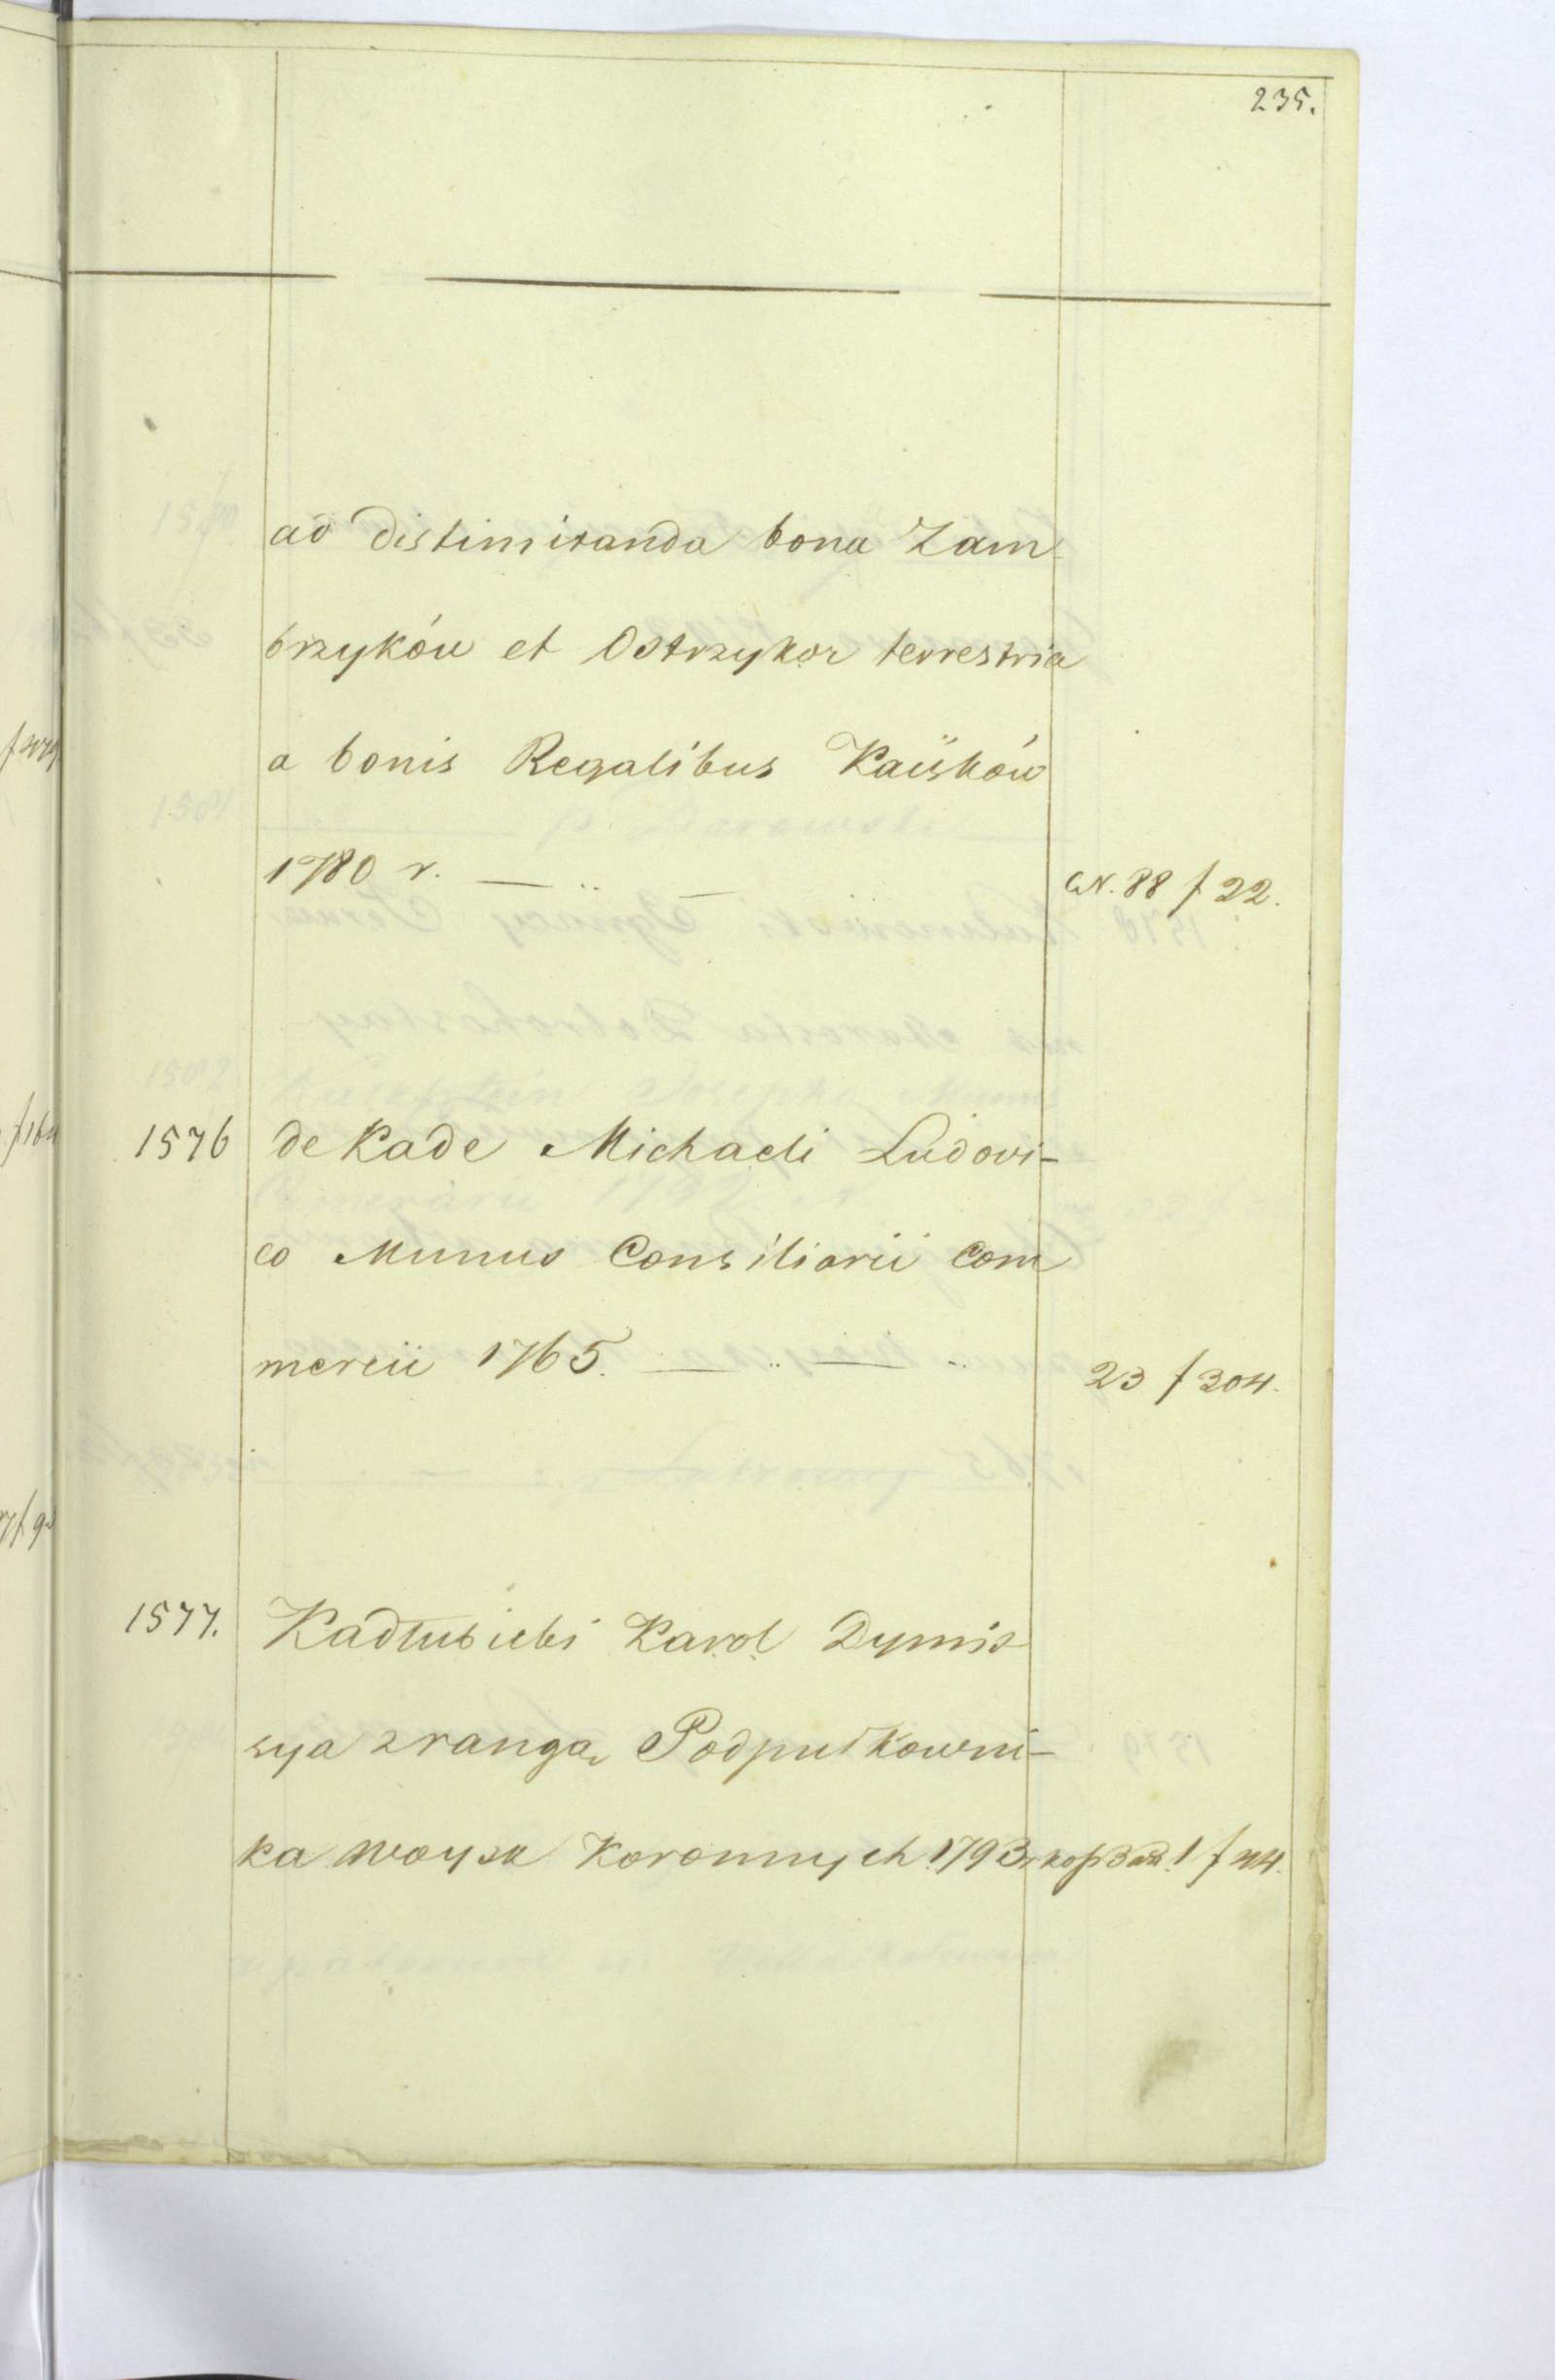 235.
ad distimitanda bona Zam
brzyków et Ostrzykor terrestria
a bonis Regalibus Kaiskow
1780 r. — .. — N. 88 f 22.
1576 de Kade Michaeli Ludovi-
co Munus Consiliarii Com
mercii 1765. — .. — .. 23 f 304.
1577. Kadłubicki Karol Dymis
sya z rangą Podpułkowni-
ka woysk Koronnych 1793 1 f 44.